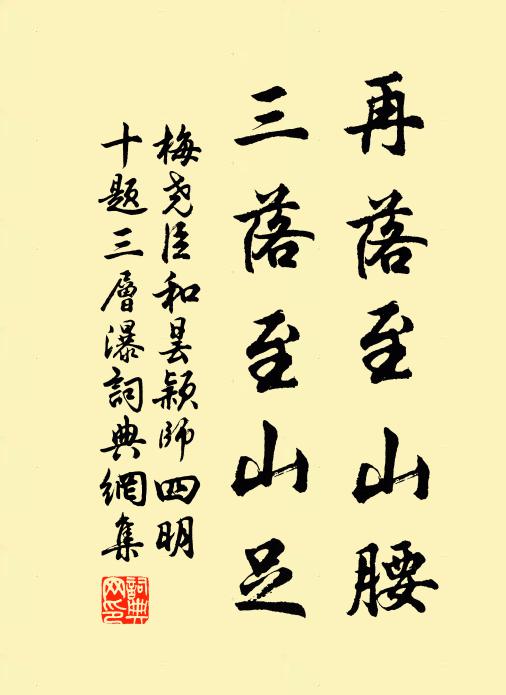 再落至山腰
三落至山足
梅尧臣和昙颖师四明
十题三層瀑詞典網集
詞典網印